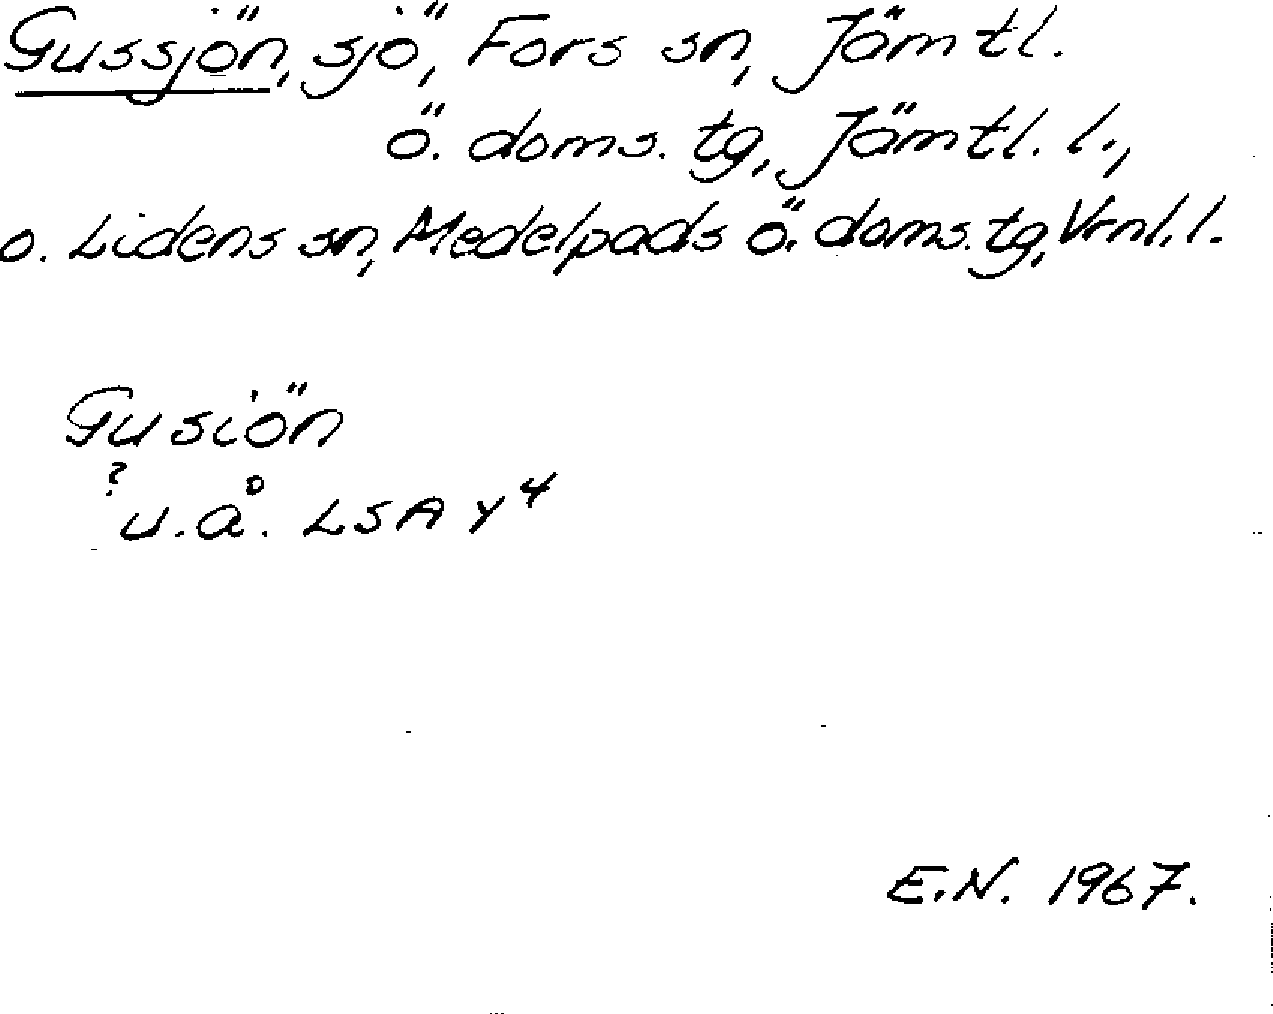 Gussjön, sjö, Fors sn, Jämtl.
ö. doms. tg, Jämtl. l.,
o. Lidens sn, Medelpads ö. doms. tg, Vrnl. l.
Gusiön
? u.å. LSA Y 4
E.N. 1967.